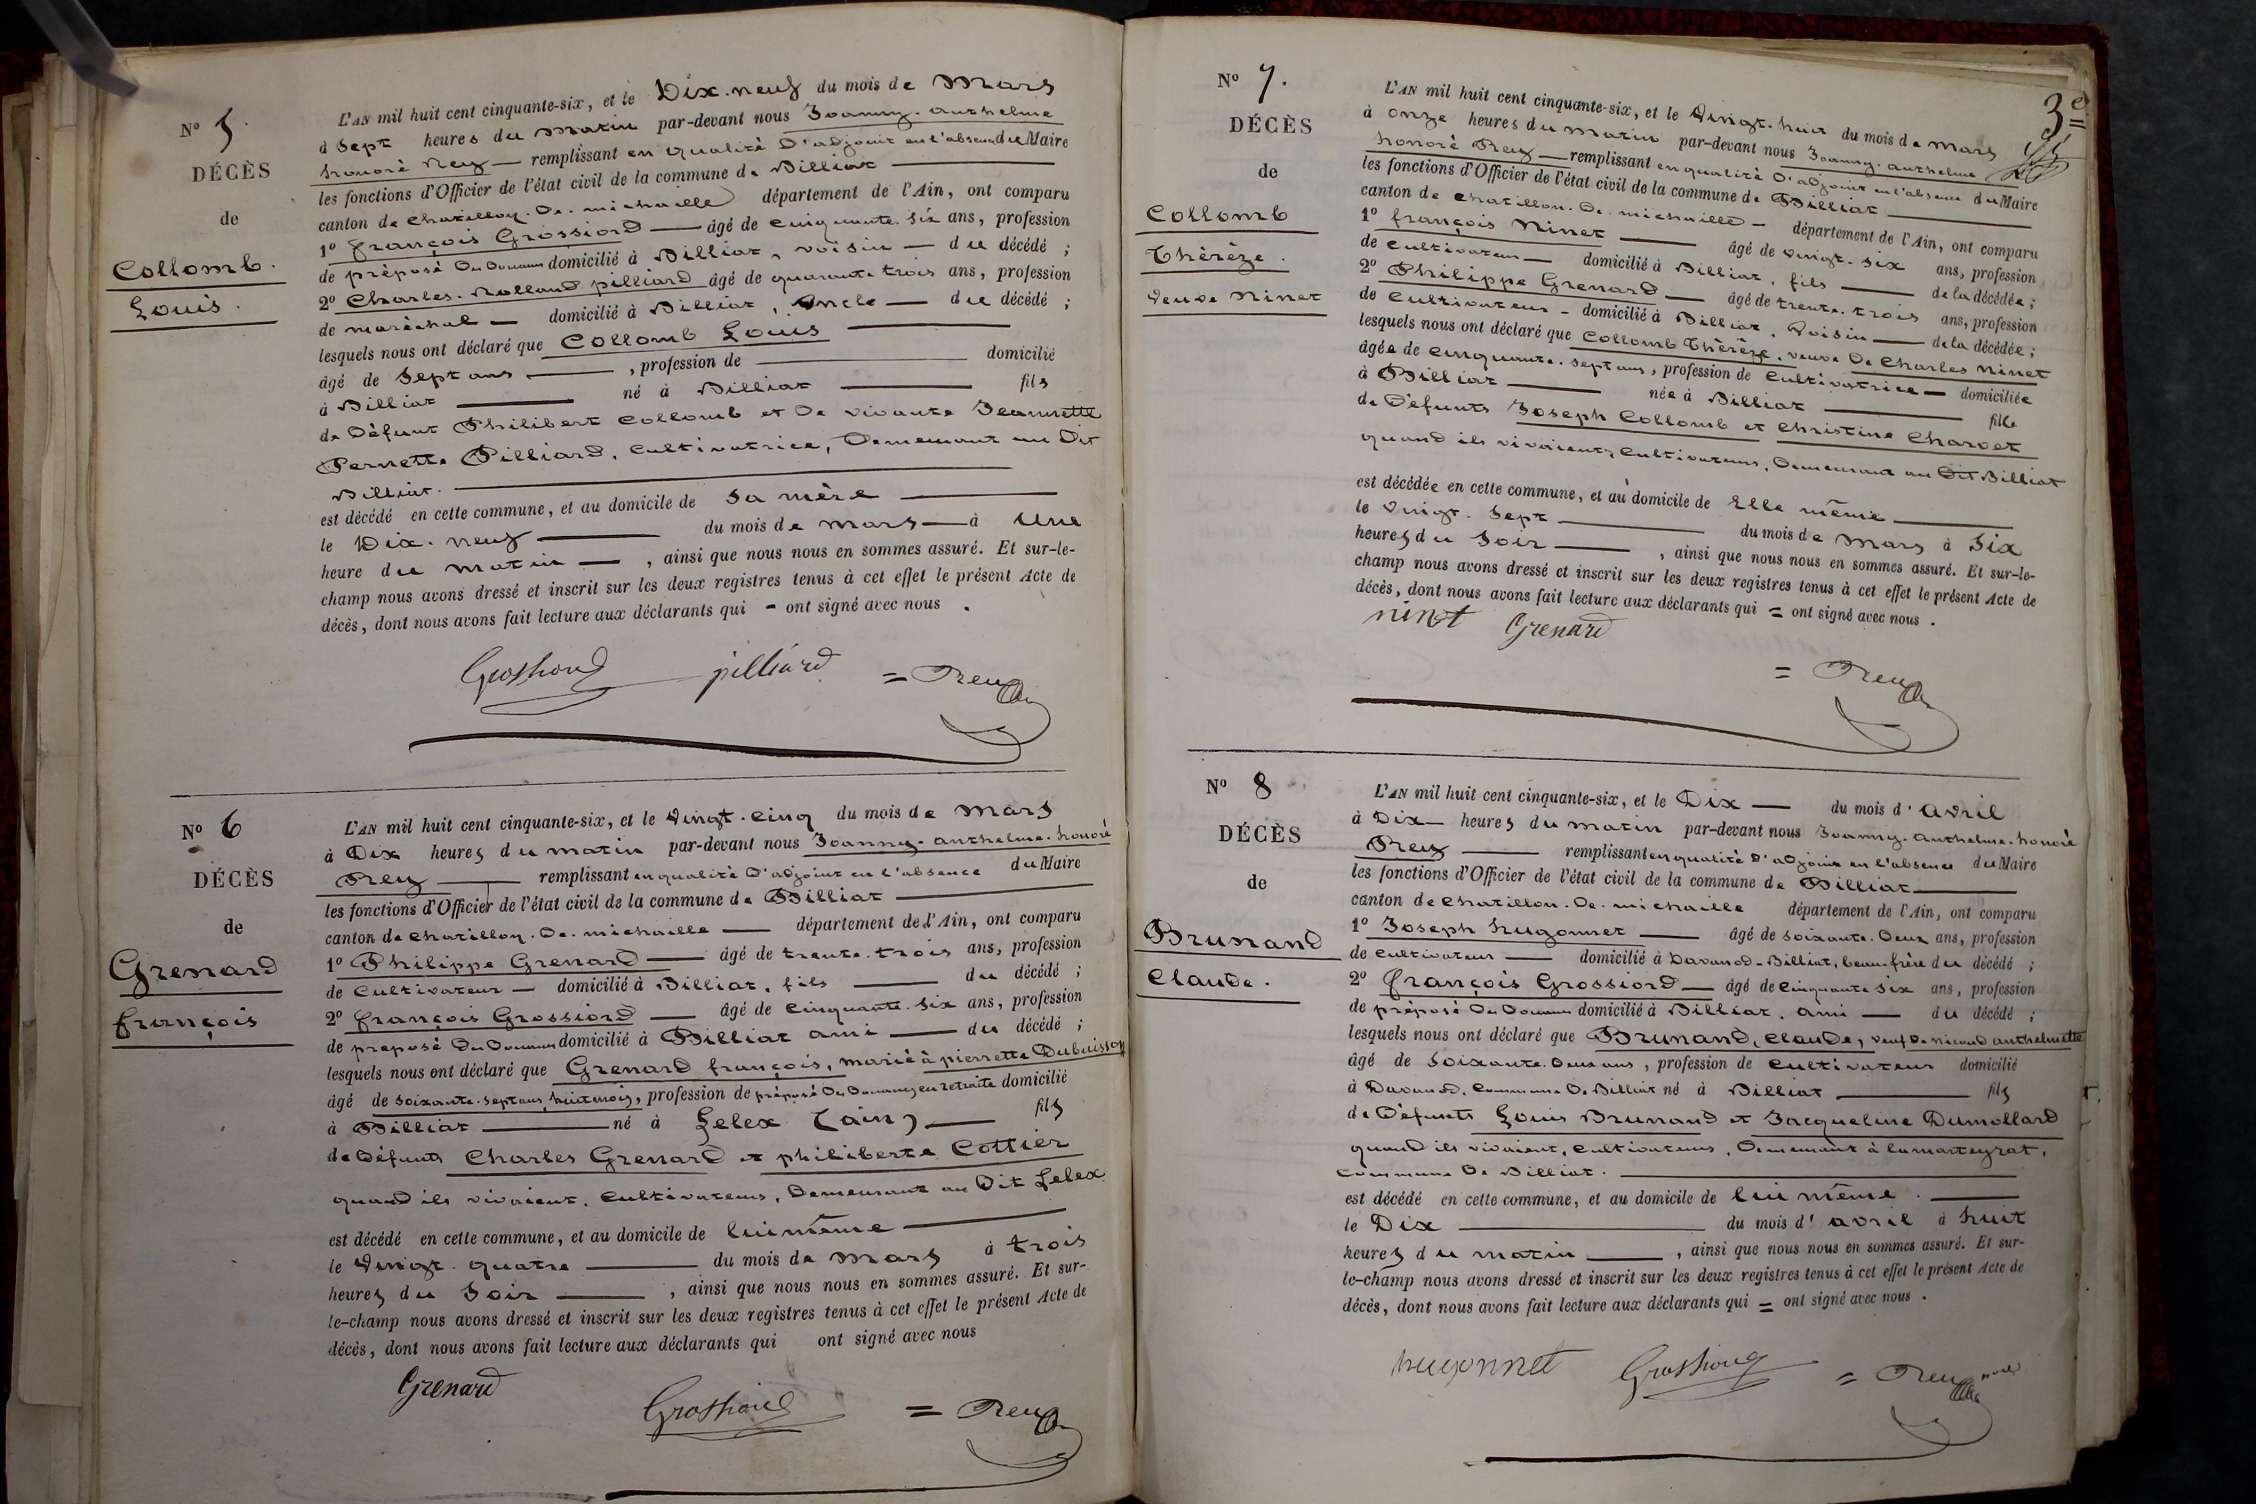 Nº 5.
DÉCÈS
de
Collomb.
Louis.
L'AN mil huit cent cinquante-six, et le Dix-neuf du mois de Mars
à Sept heures du matin par-devant nous Joanny-anthelme
honoré Rey — remplissant en qualité D'adjoint en l'absence du Maire
les fonctions d'Officier de l'état civil de la commune de Billiat
canton de Chatillon-De-michaille département de l'Ain, ont comparu
1º françois Grossiord — âgé de cinquante-six ans, profession
de préposé Des Douanes domicilié à Billiat, voisin — du décédé ;
2º Charles-Rolland pilliard âgé de quarante trois ans, profession
de maréchal — domicilié à Billiat, oncle — du décédé ;
lesquels nous ont déclaré que Collomb Louis
âgé de Sept ans —, profession de — domicilié
à Billiat — né à Billiat — fils
de Défunt Philibert Collomb et De vivante Jeannette
Pernette Pilliard, Cultivatrice, Demeurant au Dit
Billiat.
est décédé en cette commune, et au domicile de sa mère
le Dix-neuf — du mois de mars — à Une
heure du matin —, ainsi que nous nous en sommes assuré. Et sur-le-
champ nous avons dressé et inscrit sur les deux registres tenus à cet effet le présent Acte de
décès, dont nous avons fait lecture aux déclarants qui - ont signé avec nous.
Grossiord pilliard = Rey
Nº 6
DÉCÈS
de
Grenard
françois
L'AN mil huit cent cinquante-six, et le Vingt-cinq du mois de Mars
à Dix heures du matin par-devant nous Joanny-anthelme-honoré
Rey — remplissant en qualité D'adjoint en l'absence du Maire
les fonctions d'Officier de l'état civil de la commune de Billiat
canton de Chatillon-De-michaille — département de l'Ain, ont comparu
1º Philippe Grenard — âgé de trente-trois ans, profession
de Cultivateur — domicilié à Billiat, fils — du décédé ;
2º françois Grossiord — âgé de Cinquante-six ans, profession
de préposé Des Douanes domicilié à Billiat ami — du décédé ;
lesquels nous ont déclaré que Grenard françois, marié à pierrette Dubuisson
âgé de soixante-sept ans, huit mois, profession de préposé Des Douanes en retraite domicilié
à Billiat — né à Lelex (ain) — fils
de Défunts Charles Grenard et philiberte Cottier
quand ils vivaient, Cultivateurs, Demeurant au Dit Lelex
est décédé en cette commune, et au domicile de lui même
le Vingt-quatre — du mois de Mars à trois
heures du Soir —, ainsi que nous nous en sommes assuré. Et sur-
le-champ nous avons dressé et inscrit sur les deux registres tenus à cet effet le présent Acte de
décès, dont nous avons fait lecture aux déclarants qui ont signé avec nous
Grenard Grossiord = Rey
3e
Nº 7.
DÉCÈS
de
Collomb
Thérèze.
veuve Ninet
L'AN mil huit cent cinquante-six, et le Vingt-huit du mois de Mars
à onze heures du matin par-devant nous Joanny-anthelme
honoré Rey — remplissant en qualité D'adjoint en l'absence du Maire
les fonctions d'Officier de l'état civil de la commune de Billiat
canton de Chatillon-De-michaille — département de l'Ain, ont comparu
1º françois Ninet — âgé de vingt-six ans, profession
de Cultivateur — domicilié à Billiat, fils — de la décédée ;
2º Philippe Grenard — âgé de trente-trois ans, profession
de Cultivateur - domicilié à Billiat, voisin — de la décédée ;
lesquels nous ont déclaré que Collomb Thérèze, veuve De Charles Ninet
âgée de cinquante-sept ans, profession de Cultivatrice — domiciliée
à Billiat — née à Billiat — fille
de Défunts Joseph Collomb et Christine Charvet
quand ils vivaient, Cultivateurs, Demeurant au Dit Billiat
est décédée en cette commune, et au domicile de Elle même
le Vingt-sept — du mois de Mars à Six
heures du Soir —, ainsi que nous nous en sommes assuré. Et sur-le-
champ nous avons dressé et inscrit sur les deux registres tenus à cet effet le présent Acte de
décès, dont nous avons fait lecture aux déclarants qui = ont signé avec nous.
ninet Grenard
= Rey
Nº 8
DÉCÈS
de
Brunand
Claude.
L'AN mil huit cent cinquante-six, et le Dix — du mois d'avril
à Dix — heures du matin par-devant nous Joanny-anthelme-honoré
Rey — remplissant en qualité D'adjoint en l'absence du Maire
les fonctions d'Officier de l'état civil de la commune de Billiat
canton de Chatillon-De-michaille département de l'Ain, ont comparu
1º Joseph hugonnet — âgé de soixante-Deux ans, profession
de Cultivateur — domicilié à Davanod-Billiat, beau-frère du décédé ;
2º françois Grossiord — âgé de Cinquante six ans, profession
de préposé Des Douanes domicilié à Billiat, ami — du décédé ;
lesquels nous ont déclaré que Brunand, Claude, veuf De nicoud anthelmette
âgé de soixante-Deux ans, profession de Cultivateur domicilié
à Davanod, Commune De Billiat né à Billiat — fils
de Défunts Louis Brunand et Jacqueline Dumollard
quand ils vivaient, Cultivateurs, Demeurant à lamarteyrat,
Commune De Billiat.
est décédé en cette commune, et au domicile de lui même.
le Dix — du mois d'avril à huit
heures du matin —, ainsi que nous nous en sommes assuré. Et sur-
le-champ nous avons dressé et inscrit sur les deux registres tenus à cet effet le présent Acte de
décès, dont nous avons fait lecture aux déclarants qui = ont signé avec nous.
hugonnet Grossiord = Rey